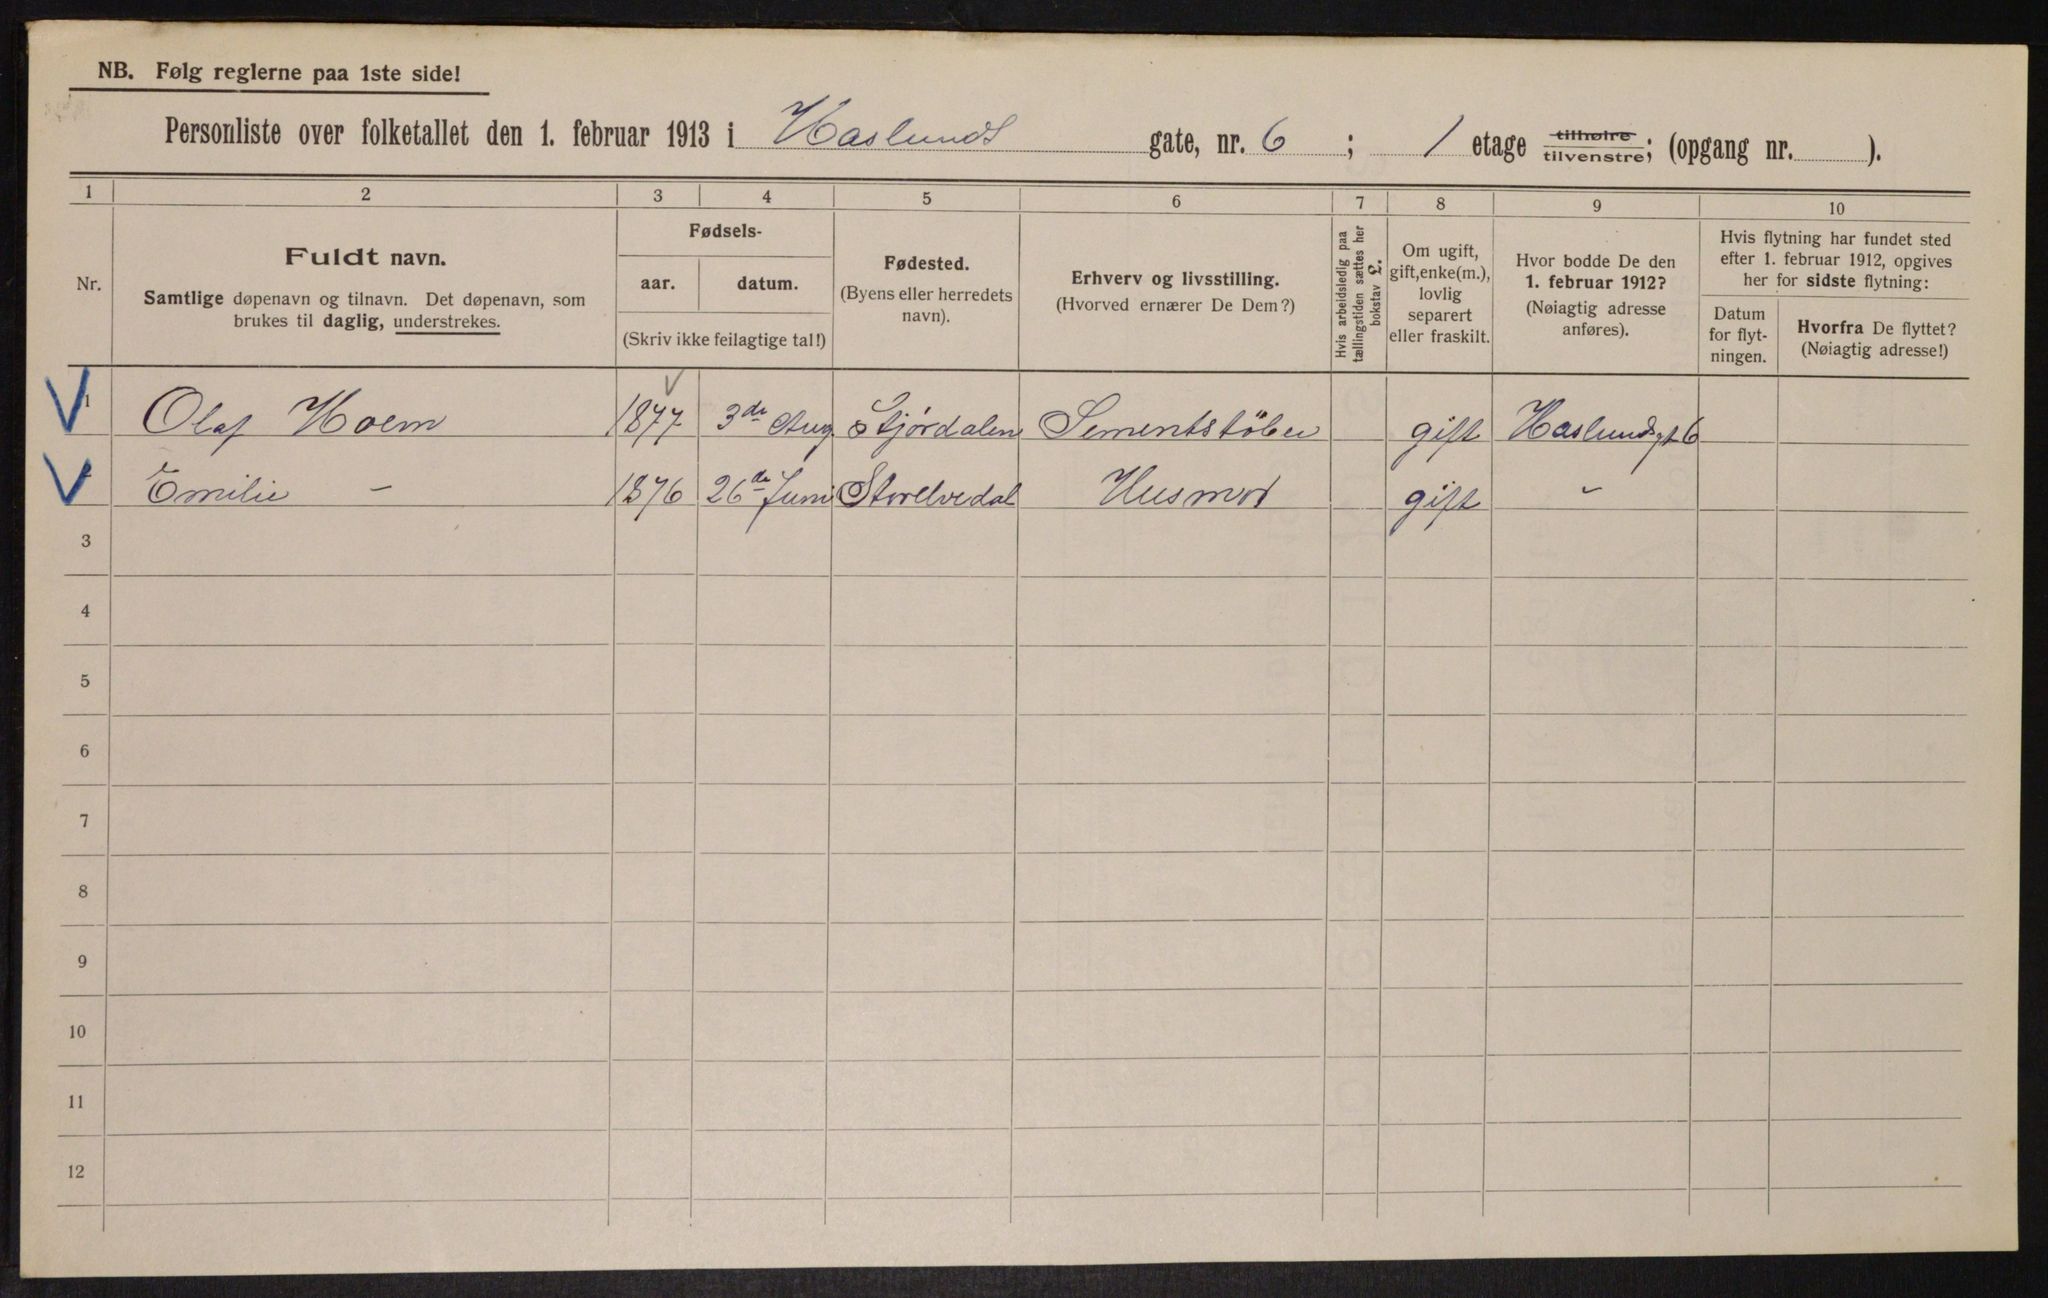 NB. Følg reglerne paa 1ste side!
Personliste over folketallet den 1. februar 1913 i Haslunds gate, nr. 6 ; 1 etage tilhøire tilvenstre; (opgang nr. ).
1 2 3 4 5 6 7 8 9 10
Nr.
Fuldt navn.
Samtlige døpenavn og tilnavn. Det døpenavn, som
brukes til daglig, understrekes.
Fødsels-
aar. datum.
(Skriv ikke feilagtige tal!)
Fødested.
(Byens eller herredets
navn).
Erhverv og livsstilling.
(Hvorved ernærer De Dem?)
Hvis arbeidsledig paa
tællingstiden sættes her
bokstav L.
Om ugift,
gift, enke(m.),
lovlig
separert
eller fraskilt.
Hvor bodde De den
1. februar 1912?
(Nøiagtig adresse
anføres).
Hvis flytning har fundet sted
efter 1. februar 1912, opgives
her for sidste flytning:
Datum
for flyt-
ningen.
Hvorfra De flyttet?
(Nøiagtig adresse!)
1 Olaf Hoem 1877 3de Aug Stjördalen Sementstöber gift Haslundsgt 6
Emilie — 1876 26de Juni Storelvedal Husmor gift -
3
4
5
6
7
8
9
10
11
12